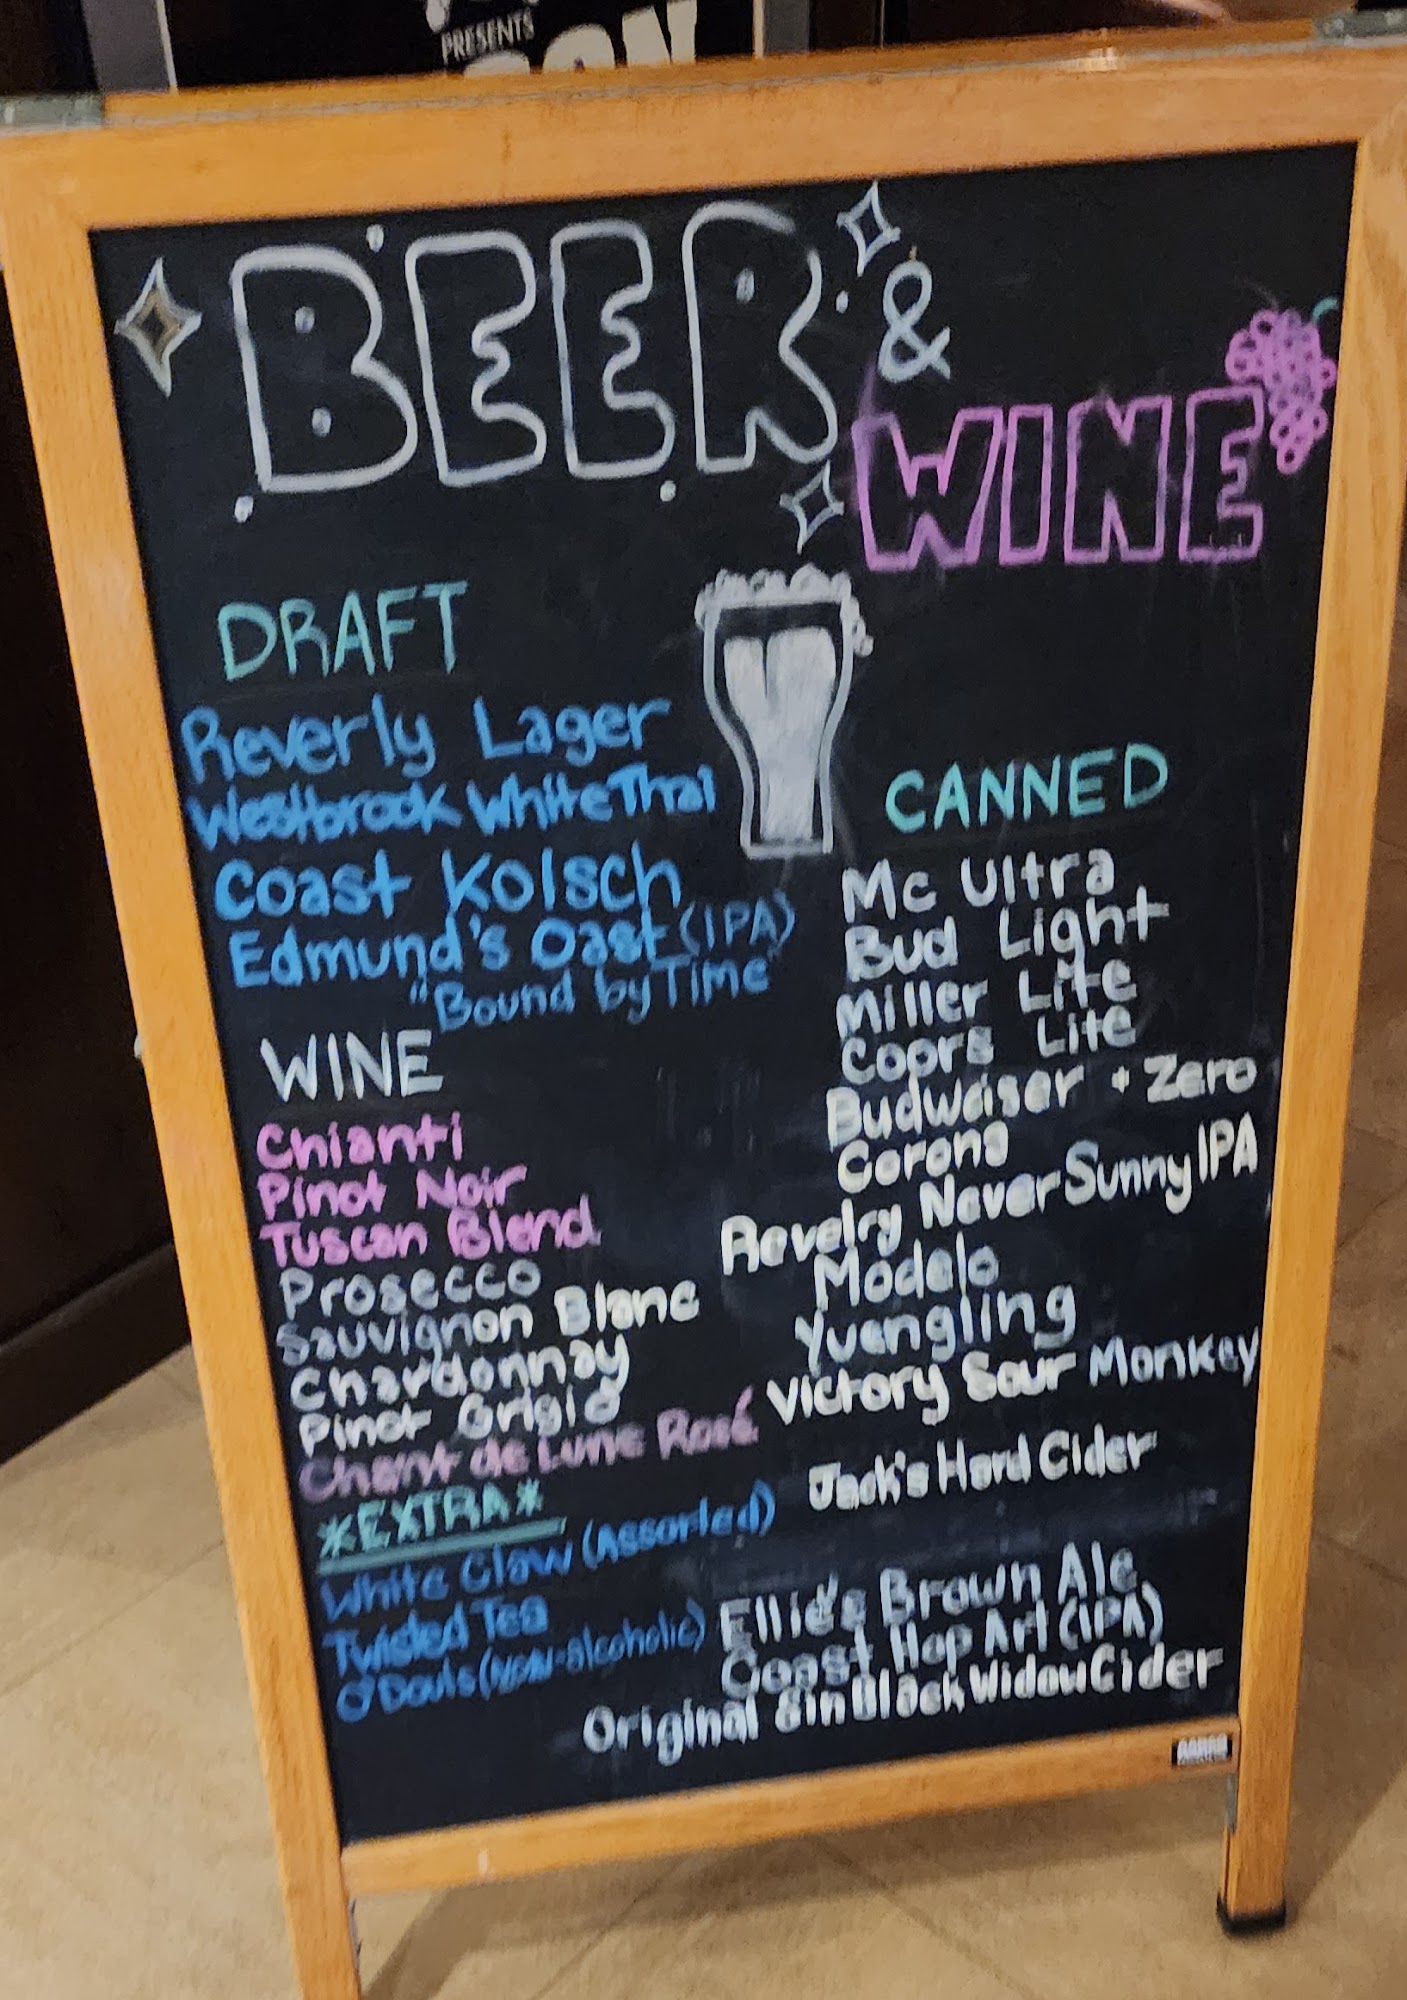 PRESENTS
BEER &
WINE
DRAFT
Reverly Lager
Westbrook White Thai
Coast Kolsch
Edmund's Oast (IPA)
"Bound by Time"
WINE
Chianti
Pinot Noir
Tuscan Blend
Prosecco
Sauvignon Blanc
Chardonnay
Pinot Grigio
Chant de Lune Rosé
*EXTRA*
White Claw (Assorted)
Twisted Tea
O'Douls (NON-alcoholic)
CANNED
Mc Ultra
Bud Light
Miller Lite
Coors Lite
Budweiser + Zero
Corona
Revelry Never Sunny IPA
Modelo
Yuengling
Victory Sour Monkey
Jack's Hard Cider
Ellie's Brown Ale
Coast Hop Art (IPA)
Original Sin Black Widow Cider